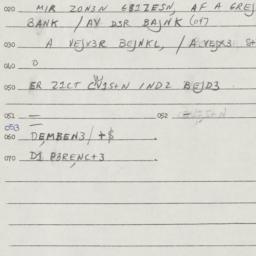 020 MIR ZON3N GRIZESN, AF A GREJ
BANK / AV D3R BAJNK (of)
030 A VEJV3R BEJNKL, / A VEJX3 St
040 0
050 ER ZICT CVISt+N IND2 BEJD3
051 — 052
053 —
060 DEMBEN3 / +$.
070 D1 P3RENC+3.